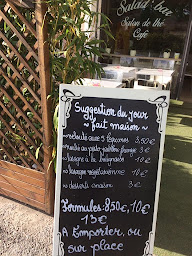 Salad' bar
Salon de thé
Café
Suggestion du jour
~ fait maison ~
~ velouté aux 5 légumes 3,50€
~ lasagne à la bolognaise 10€
~ lasagne végétarienne 10€
~ desserts maison 3€
Formules: 8,50€, 10€
13€
A Emporter, ou
sur place